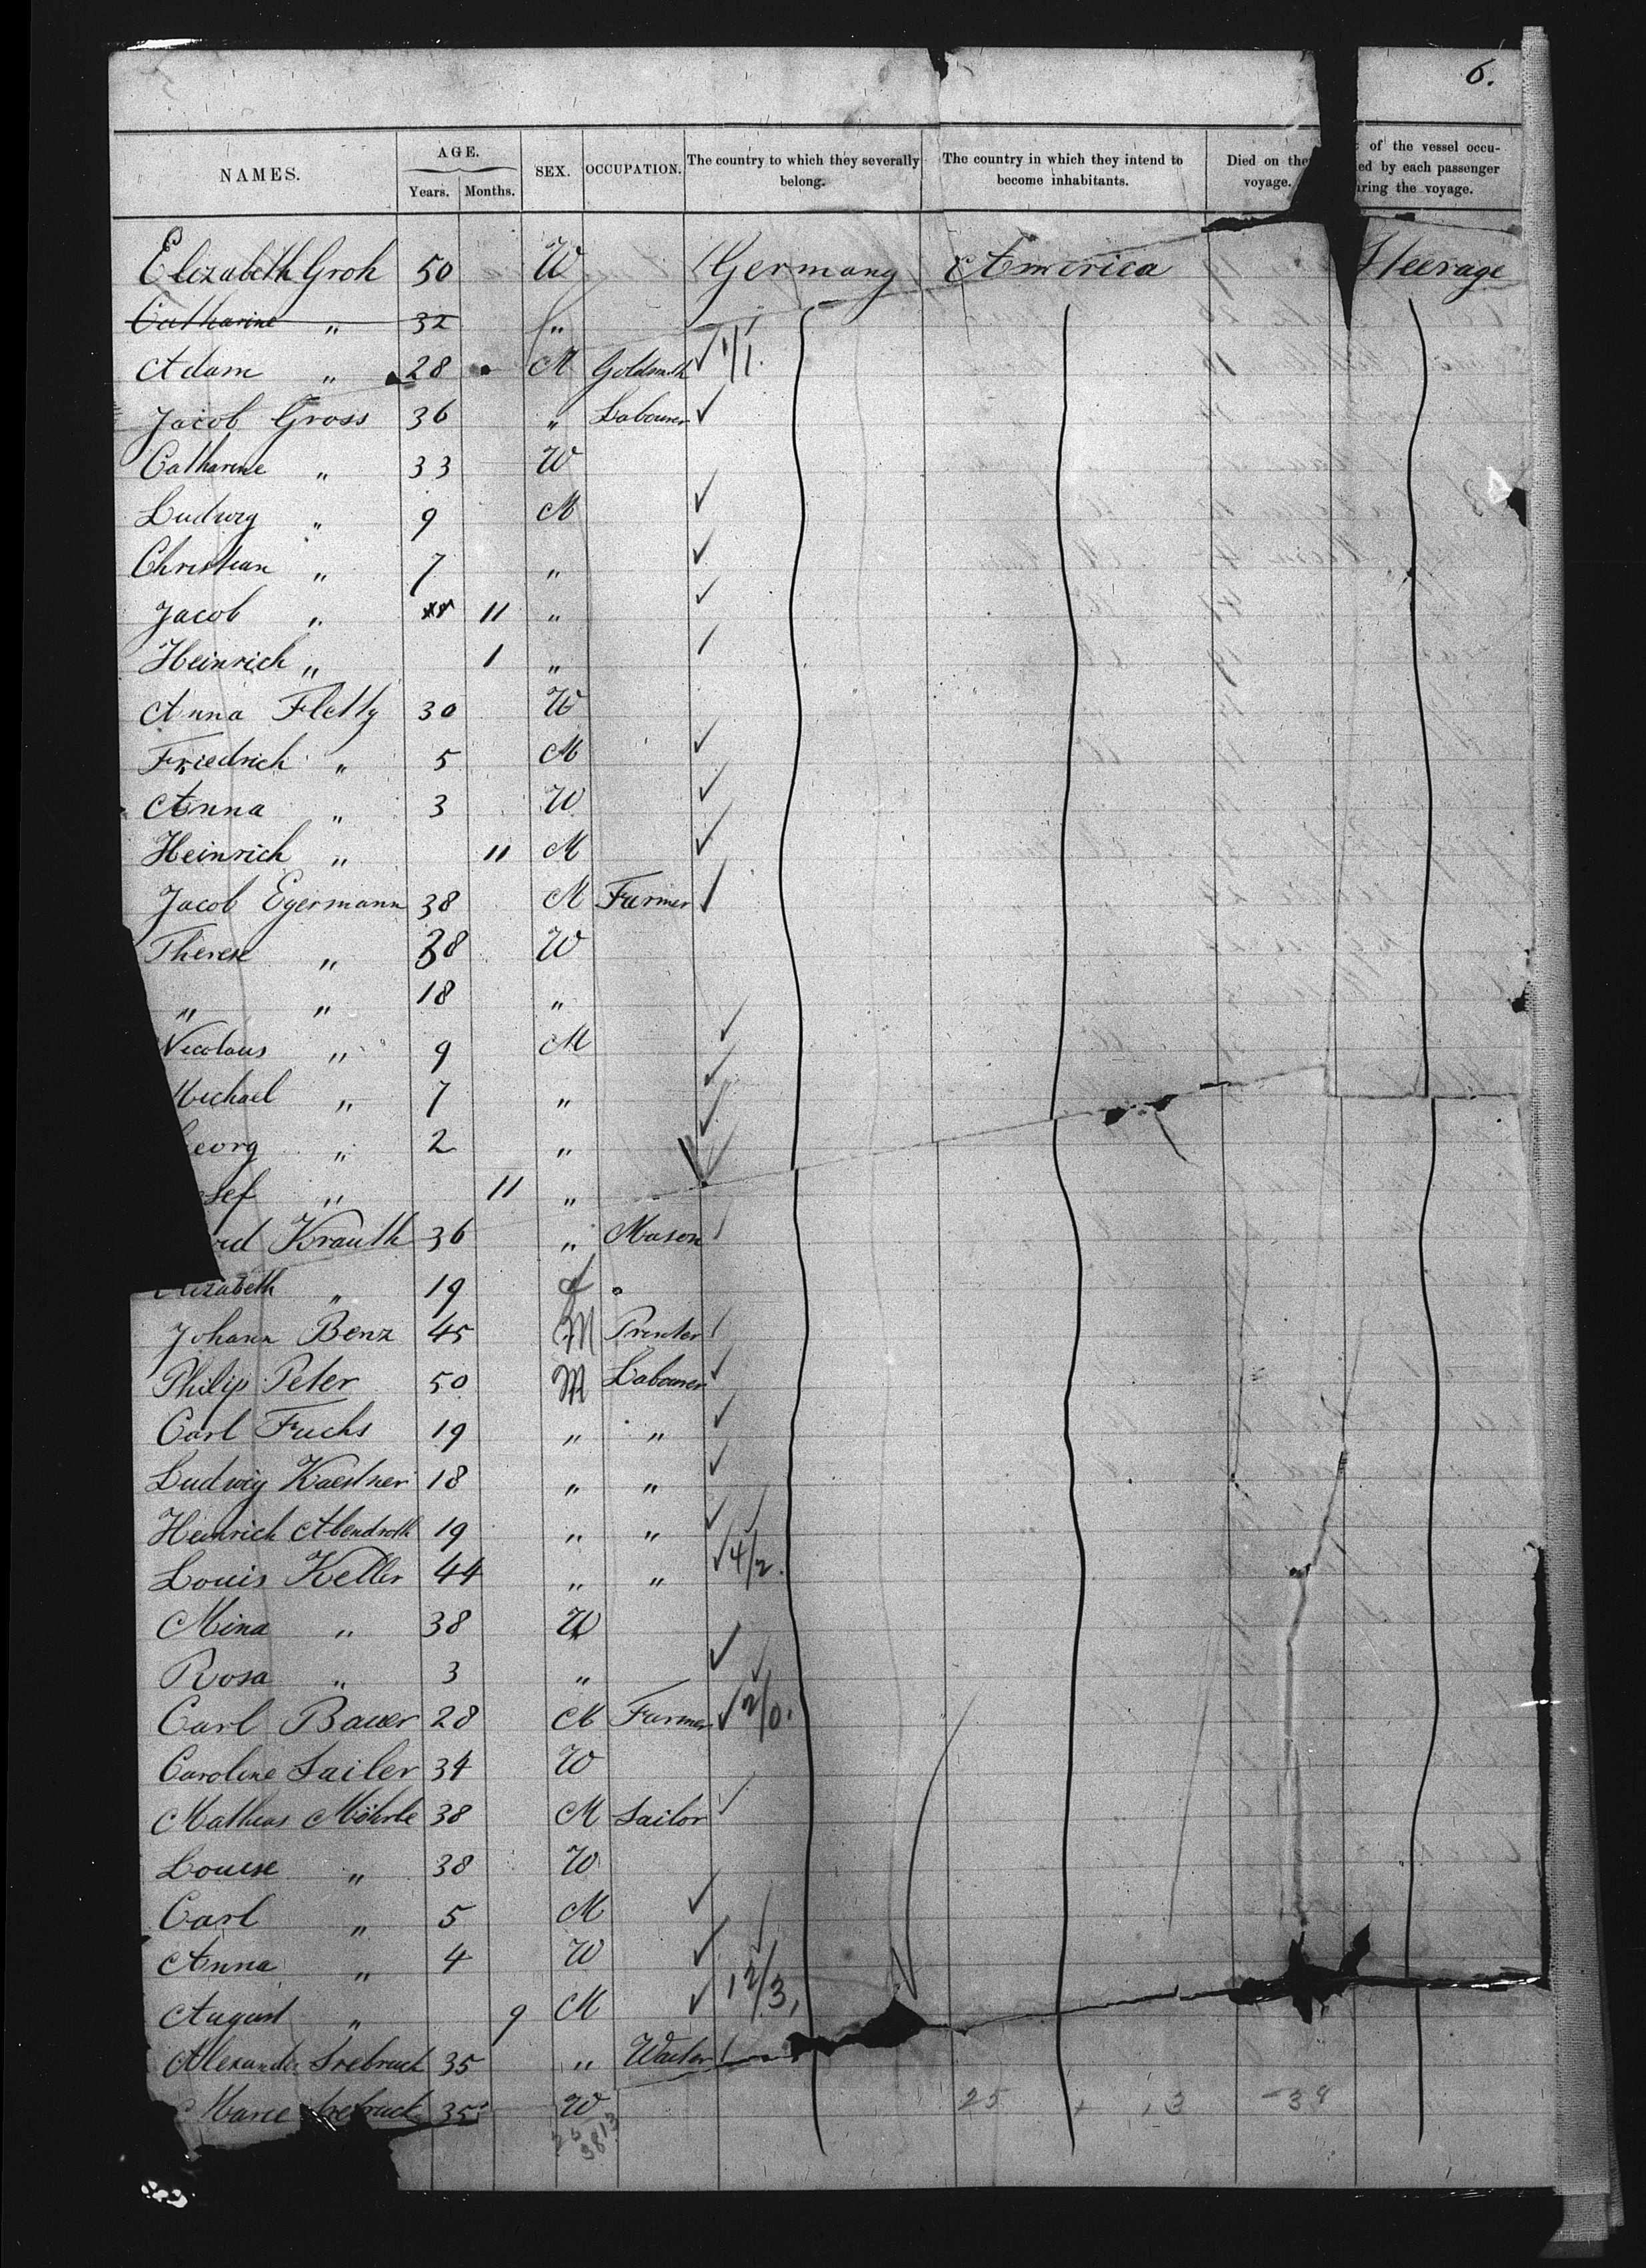 6.
NAMES. AGE. Years. Months. SEX. OCCUPATION. The country to which they severally belong. The country in which they intend to become inhabitants. Died on the voyage. of the vessel occu- ed by each passenger ring the voyage.
Elizabeth Groh 50 W Germany America Steerage
Catharine " 32 "
Adam " 28 M Goldsmith 1/1.
Jacob Gross 36 " Labourer
Catharine " 33 W
Ludwig " 9 M
Christian " 7 "
Jacob " 11 "
Heinrich " 1 "
Anna 30 W
Friedrich " 5 M
Anna " 3 W
Heinrich " 11 M
Jacob Egermann 38 M Farmer
Therese " 38 W
" " 18 "
Nicolaus " 9 M
Michael " 7 "
eorg " 2 "
sef " 11 "
rd Krauth 36 " Mason
Elizabeth " 19 f
Johann Benz 45 M Printer
Philip Peter 50 M Labourer
Carl Fuchs 19 " "
Ludwig Kaestner 18 " "
Heinrich Abendroth 19 " "
Louis Keller 44 " " 4/2.
Mina " 38 W
Rosa " 3 "
Carl Bauer 28 M Farmer 2/0.
Caroline Sailer 34 W
Mathias Möhrle 38 M Sailor
Louise " 38 W
Carl " 5 M
Anna " 4 W
August " 9 M 12/3,
Alexander 35 " Waiter
Marie 35 W 25 13 38
38 13